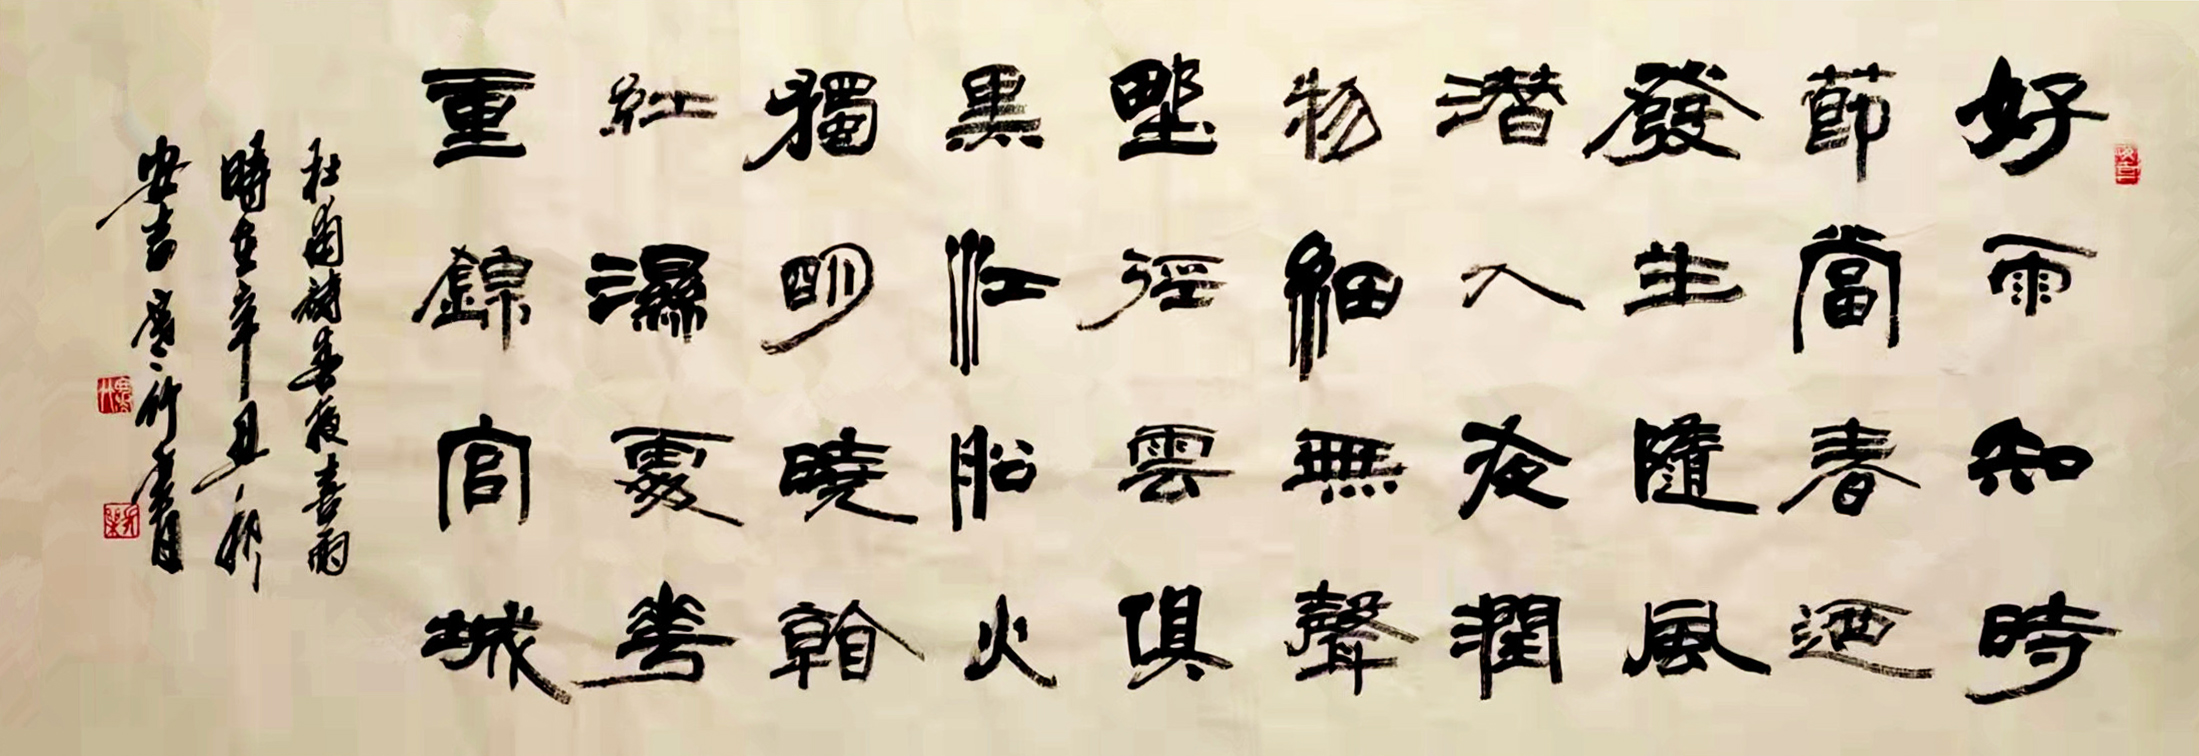 好雨知時
節當春迺
發生隨風
潛入夜潤
物細無聲
野徑雲俱
黑江船火
獨明曉看
紅濕處華
重錦官城
杜甫詩春夜喜雨
時在辛丑秋
安吉寒竹